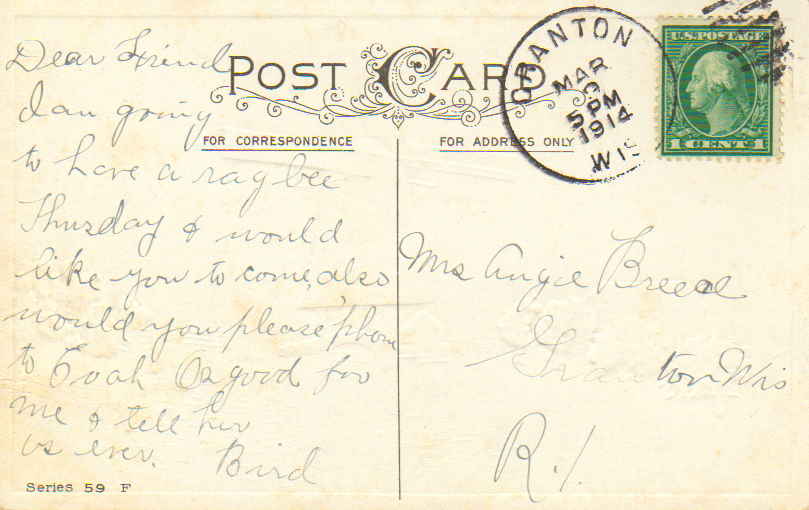 POST CARD
FOR CORRESPONDENCE
FOR ADDRESS ONLY
GRANTON
MAR
5 PM
1914
WIS
U.S. POSTAGE
1 CENT 1
Dear Friend
I am going
to have a rag bee
Thursday & would
like you to come, also
would you please 'phone
to Eoah Osgood for
me & tell her
as ever. Bird
Mrs Angie Breed
Granton Wis
R. 1.
Series 59 F